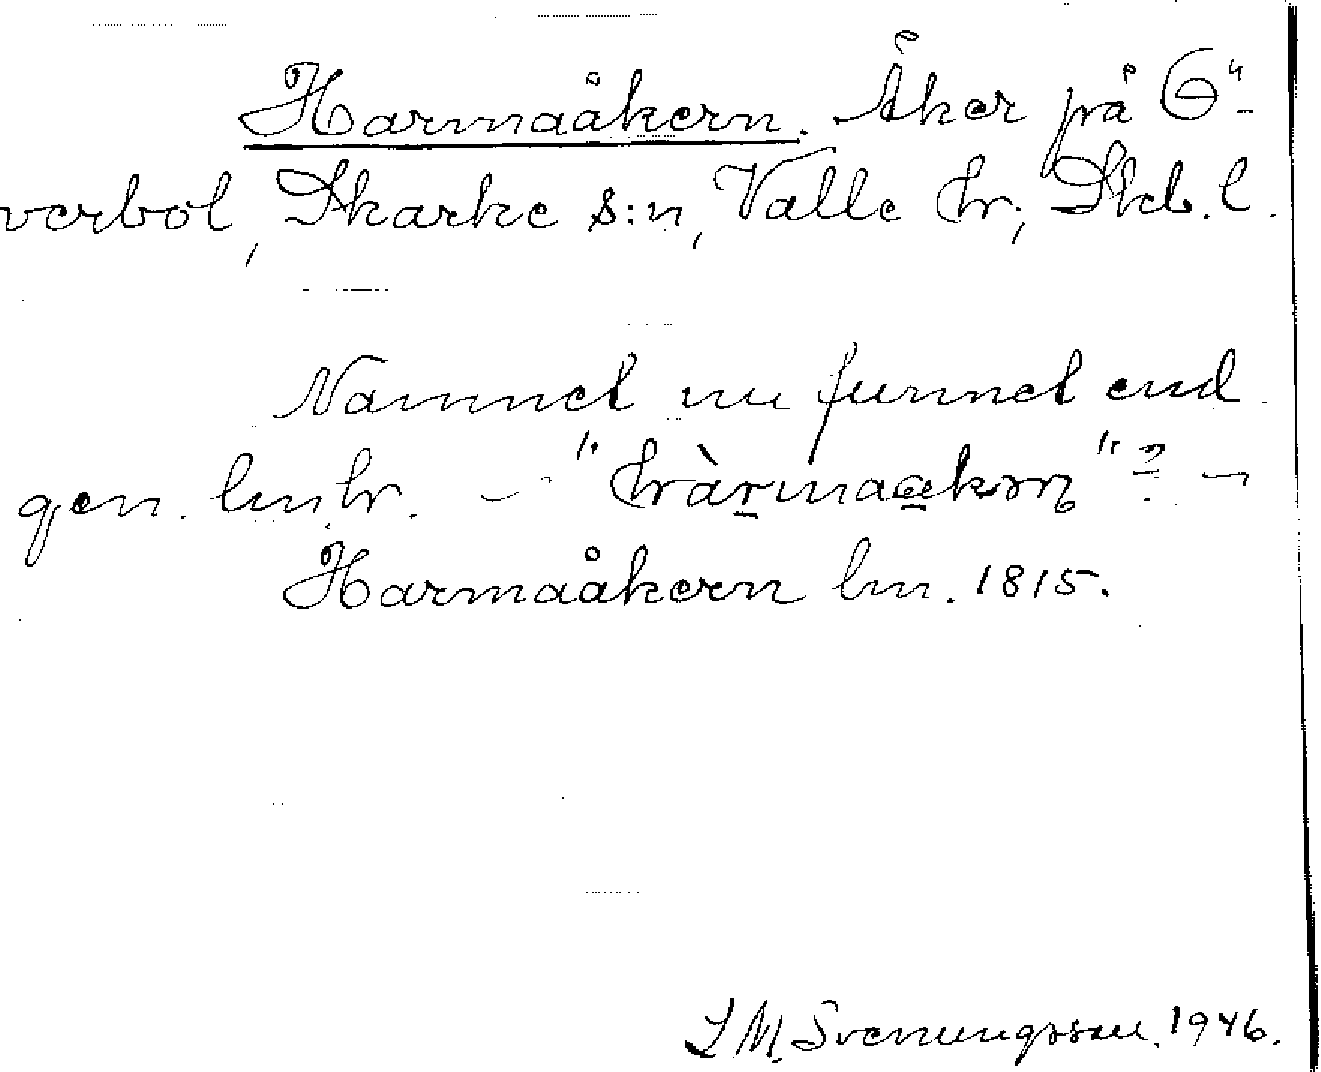 Harmaåkern. Åker på Ö-
verbol, Skarke s:n, Valle hr, Skb. l.
Namnet nu funnet end
gen. lm.hr. – "hàrmaakrn" ? –
Harmaåkern lm. 1815.
S M. Svenungsson. 1946.